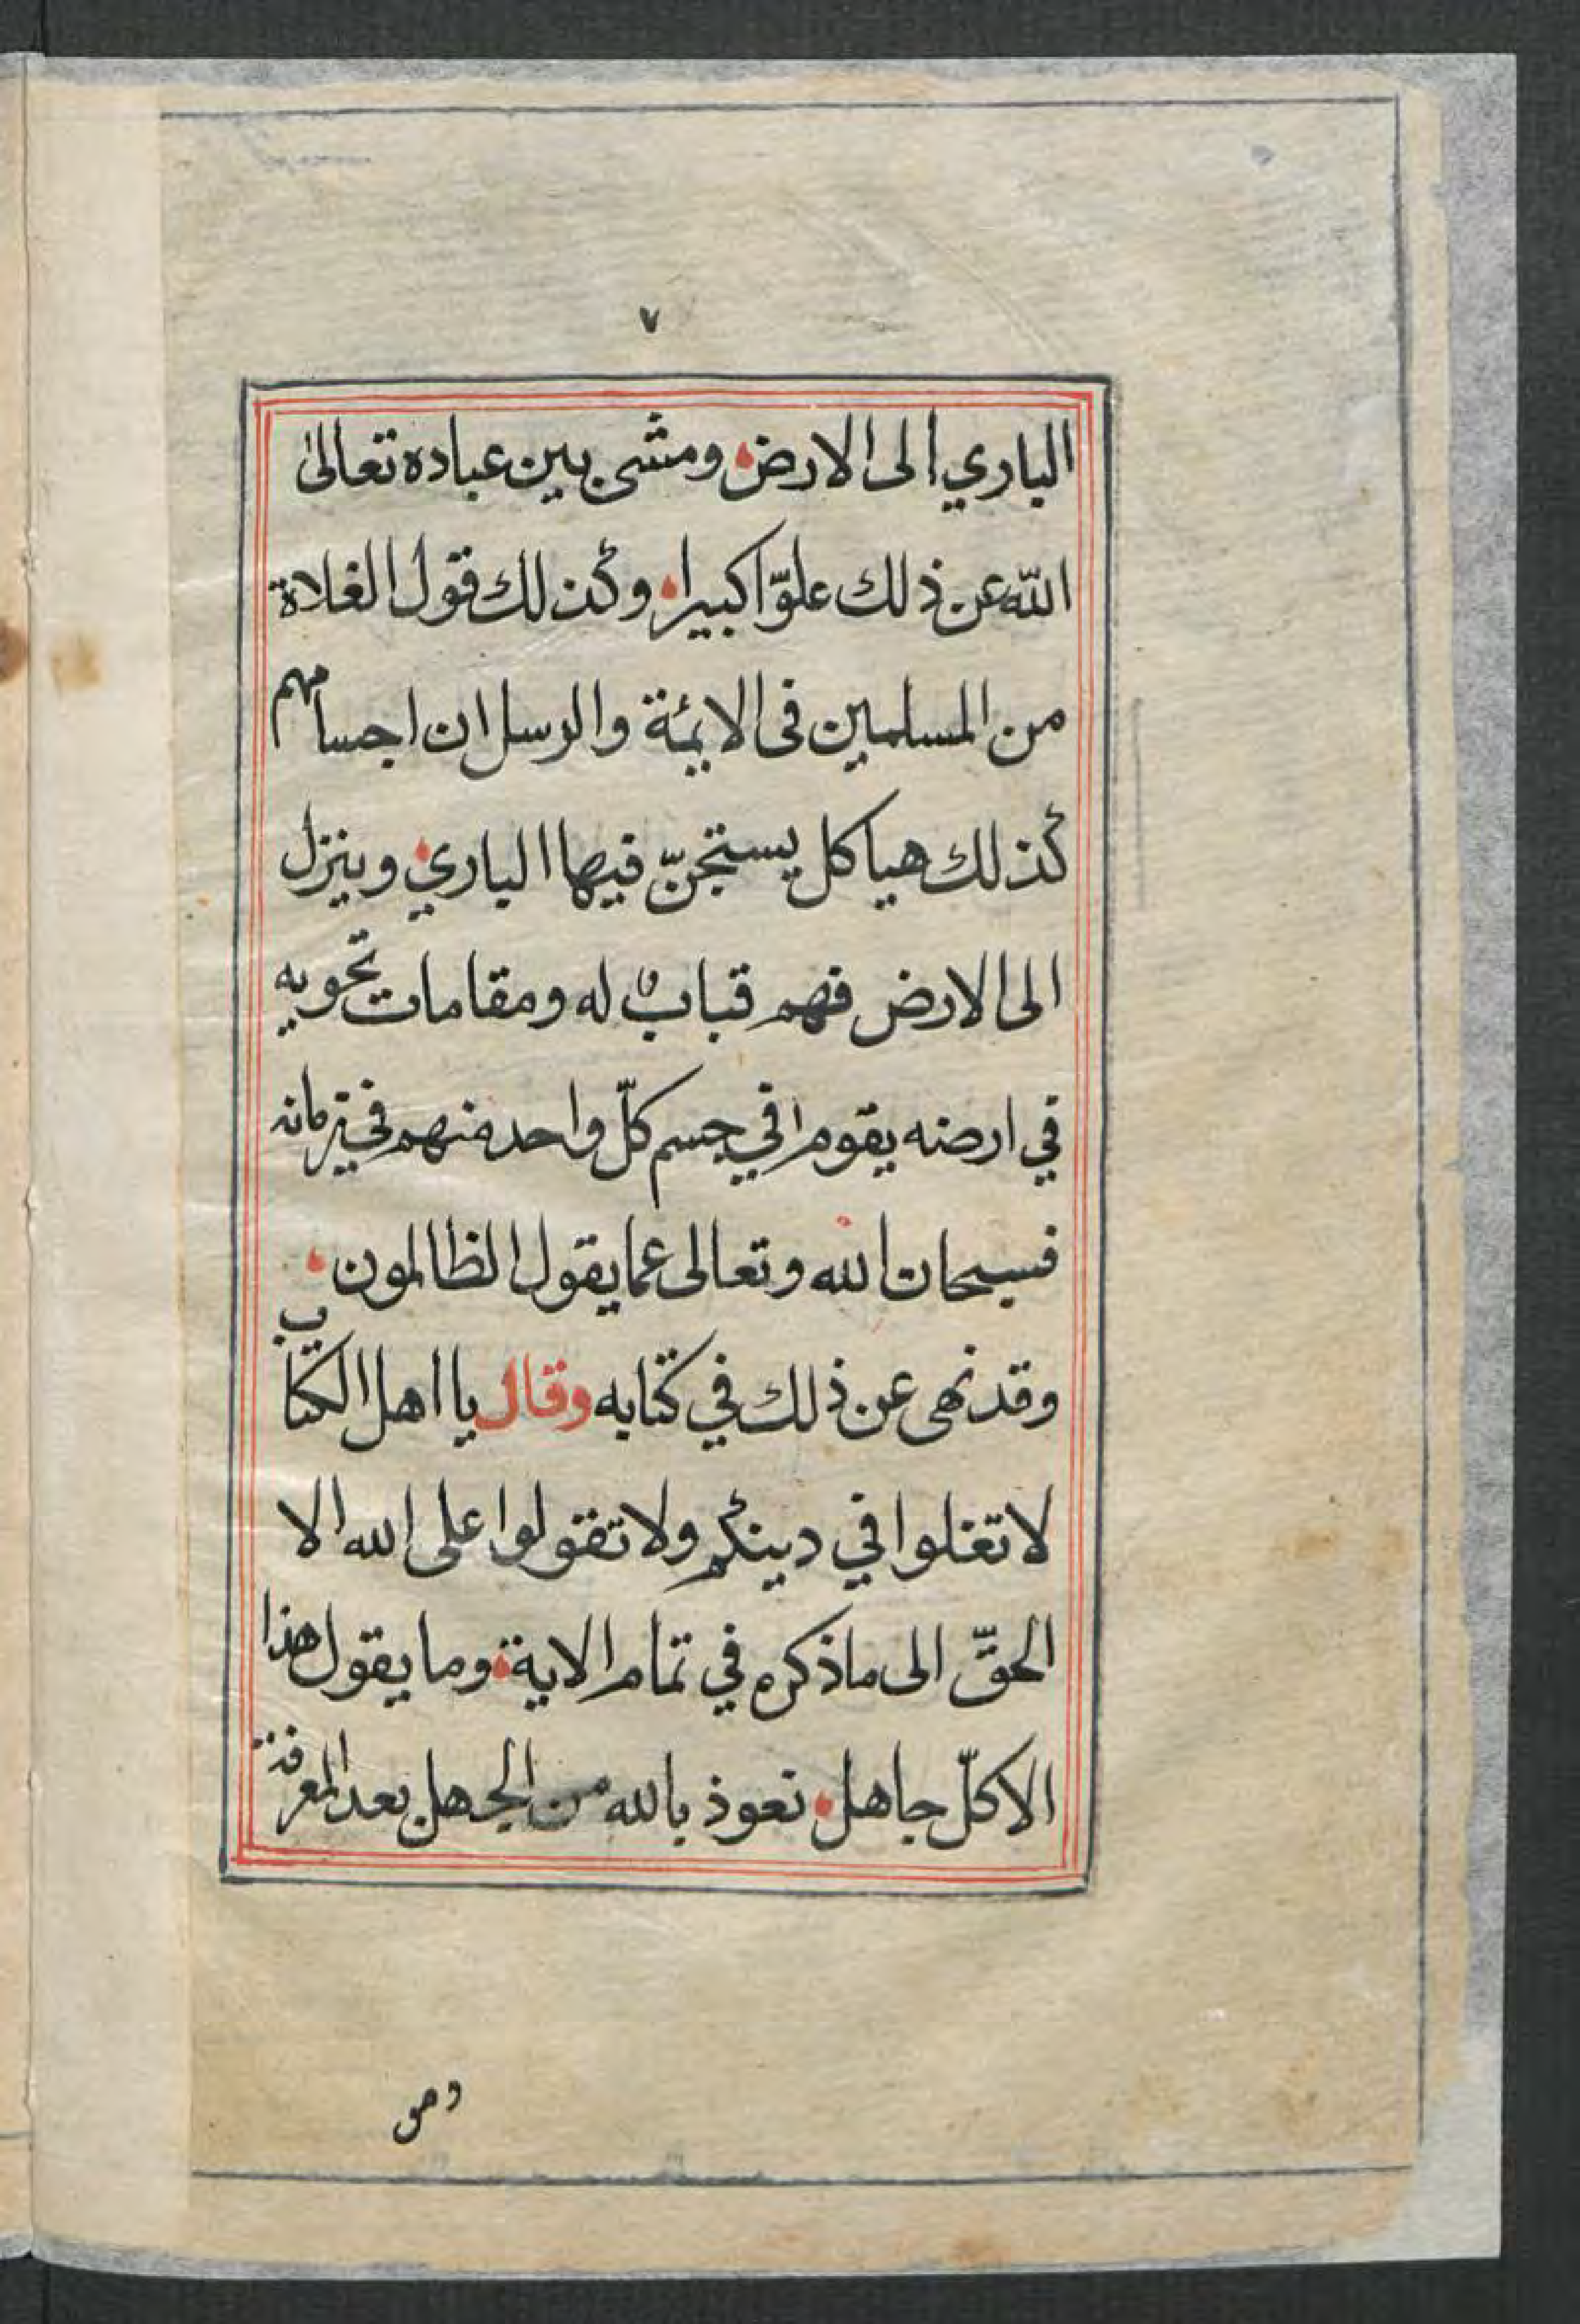 ٧
الباري الى الارض ومشى بين عباده تعالى
الله عن ذلك علوّا كبيرا وكذلك قول الغلاة
من المسلمين فى الايمّة والرسل ان اجسامهم
كذلك هياكل يستجنّ فيها الباري وينزل
الى الارض فهم قباب له ومقامات تحويه
في ارضه يقوم في جسم كلّ واحد منهم في زمانه
فسبحان الله وتعالى عما يقول الظالمون
وقد نهى عن ذلك في كتابه وقال يا اهل الكتاب
لا تغلوا في دينكم ولا تقولوا على الله الا
الحقّ الى ما ذكره في تمام الاية وما يقول هذا
الا كلّ جاهل نعوذ بالله من الجهل بعد المعرفة
وهو